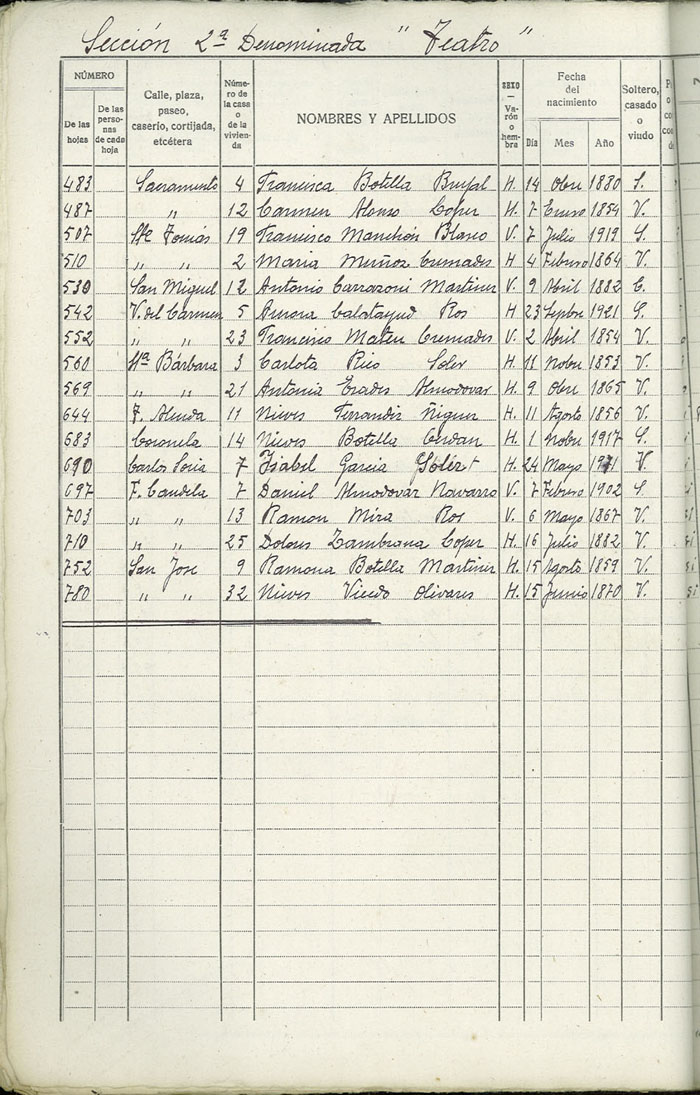 Sección 2ª Denominada "Teatro"
NÚMERO
De las hojas
De las perso-nas de cada hoja
Calle, plaza, paseo, caserío, cortijada, etcétera
Núme-ro de la casa o de la vivien-da
NOMBRES Y APELLIDOS
SEXO — Va-rón o hem-bra
Fecha del nacimiento
Día Mes Año
Soltero, casado o viudo
483 Sacramento 4 Francisca Botella Brufal H. 14 Obre 1880 S.
487 " 12 Carmen Alonso Coper H. 7 Enero 1854 V.
507 Sto Tomás 19 Francisco Manchón Blasco V. 7 Julio 1919 S.
510 " " 2 Maria Muñoz Cremades H 4 Febrero 1864 V.
530 San Miguel 12 Antonio Martinez V. 9 Abril 1882 C.
542 V. del Carmen 5 Aurora Calatayud Ros H 23 Sepbre 1921 S.
552 " " 23 Francisco Mateu Cremades V. 2 Abril 1854 V.
560 Sta Bárbara 3 Carlota Rico Soler H. 11 Nobre 1853 V.
569 " " 21 Antonia Almodovar H. 9 Obre 1865 V.
644 F. 11 Nieves Ferrandiz Ñiguez H. 11 Agosto 1856 V.
683 Coronela 14 Nieves Botella Cerdan H. 1 Nobre 1917 S.
690 Carlos Soria 7 Isabel Garcia Soler H. 24 Mayo V.
697 F. Candela 7 Daniel Almodovar Navarro V. 7 Febrero 1902 S.
703 " " 13 Ramon Mira Ros V. 6 Mayo 1867 V.
710 " " 25 Dolores Zambrana Coper H. 16 Julio 1882 V.
752 San Jose 9 Ramona Botella Martinez H. 15 Agosto 1859 V.
780 " " 32 Nieves Olivares H. 15 Junio 1870 V.